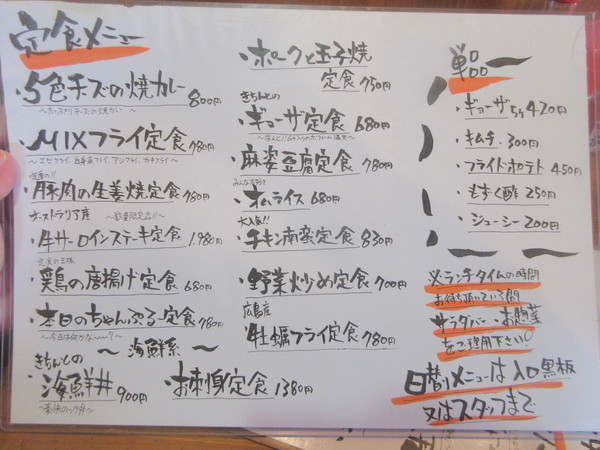 定食メニュー
5色チーズの焼カレー 800円
MIXフライ定食 780円
豚肉の生姜焼定食 780円
オーストラリア産 〜数量限定品!!〜
牛サーロインステーキ定食 1.980円
定食の王様
鶏の唐揚げ定食 680円
本日のちゃんぷる定食 780円
〜今日は何かな〜?〜
〜 海鮮系 〜
きちんとの
海鮮丼 900円
お刺身定食 1380円
・ポークと玉子焼
定食 750円
きちんとの
・ギョーザ定食 680円
・麻婆豆腐定食 780円
みんな大好き
・オムライス 680円
大人気!!
・チキン南蛮定食 830円
・野菜炒め定食 700円
広島産
・牡蠣フライ定食 780円
単品
・ギョーザ 5ヶ 420円
・キムチ 300円
・フライドポテト 450円
・もずく酢 250円
・ジューシー 200円
※ランチタイムの時間
お待ち頂いている間
サラダバー・お惣菜
をご利用下さい
日替りメニューは入口黒板
又はスタッフまで